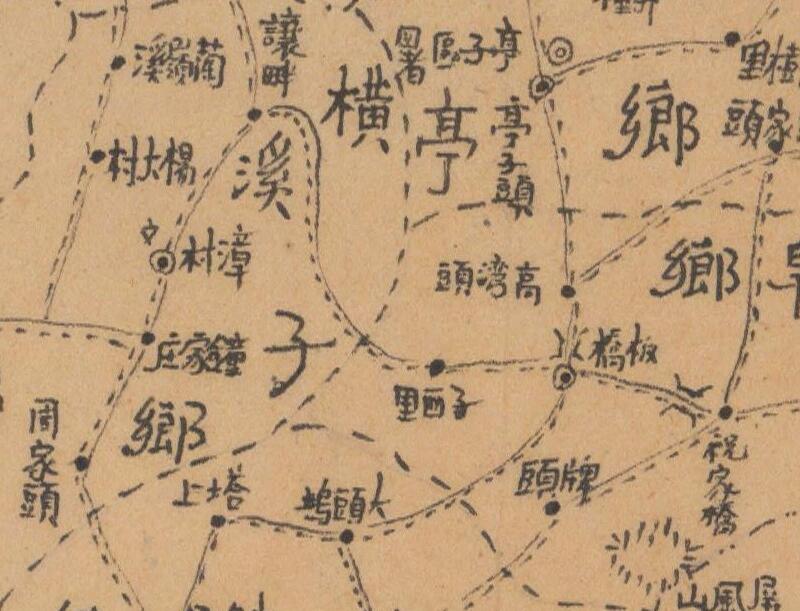 讓畔
亭子區署
橫
亭
亭子頭
鄉
家頭
楊大村
溪
漳村
鄉
高湾頭
子
鐘家庄
板橋
子西里
鄉
周家頭
塔上
大頭塢
牌頭
祝家橋
屏風山